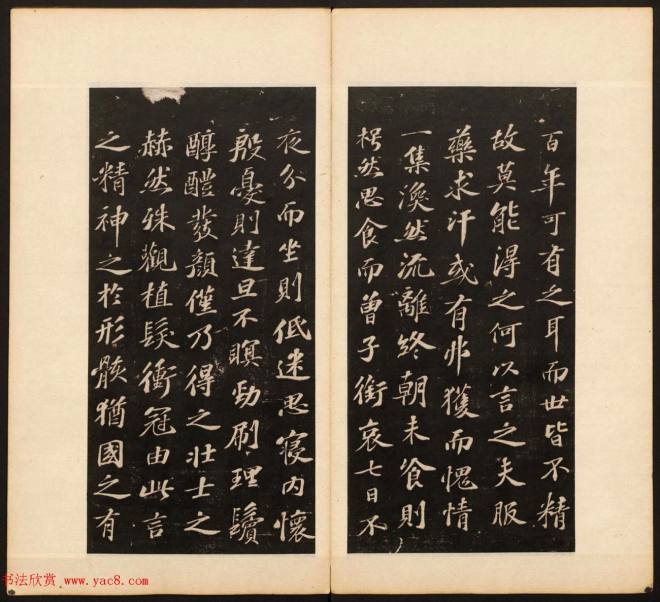 百年可有之耳而世皆不精
故莫能得之何以言之夫服
藥求汗或有弗獲而愧情
一集渙然流離終朝未飡則
枵然思食而曾子銜哀七日不
夜分而坐則低迷思寑内懷
殷憂則達旦不瞑勁刷理鬢
醇醴發顏僅乃得之壮士之
赫然殊觀植髮衝冠由此言
之精神之於形骸猶國之有
书法欣赏 www.yac8.com